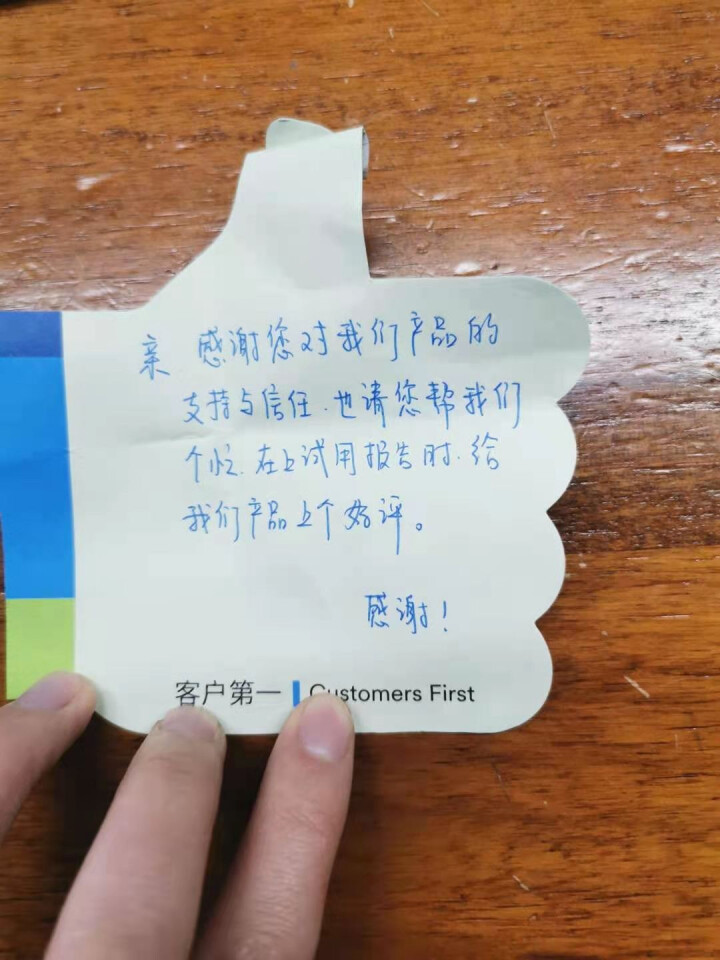 亲 感谢您对我们产品的
支持与信任.也请您帮我们
个忙.在上试用报告时.给
我们产品上个好评。
感谢!
客户第一 Customers First